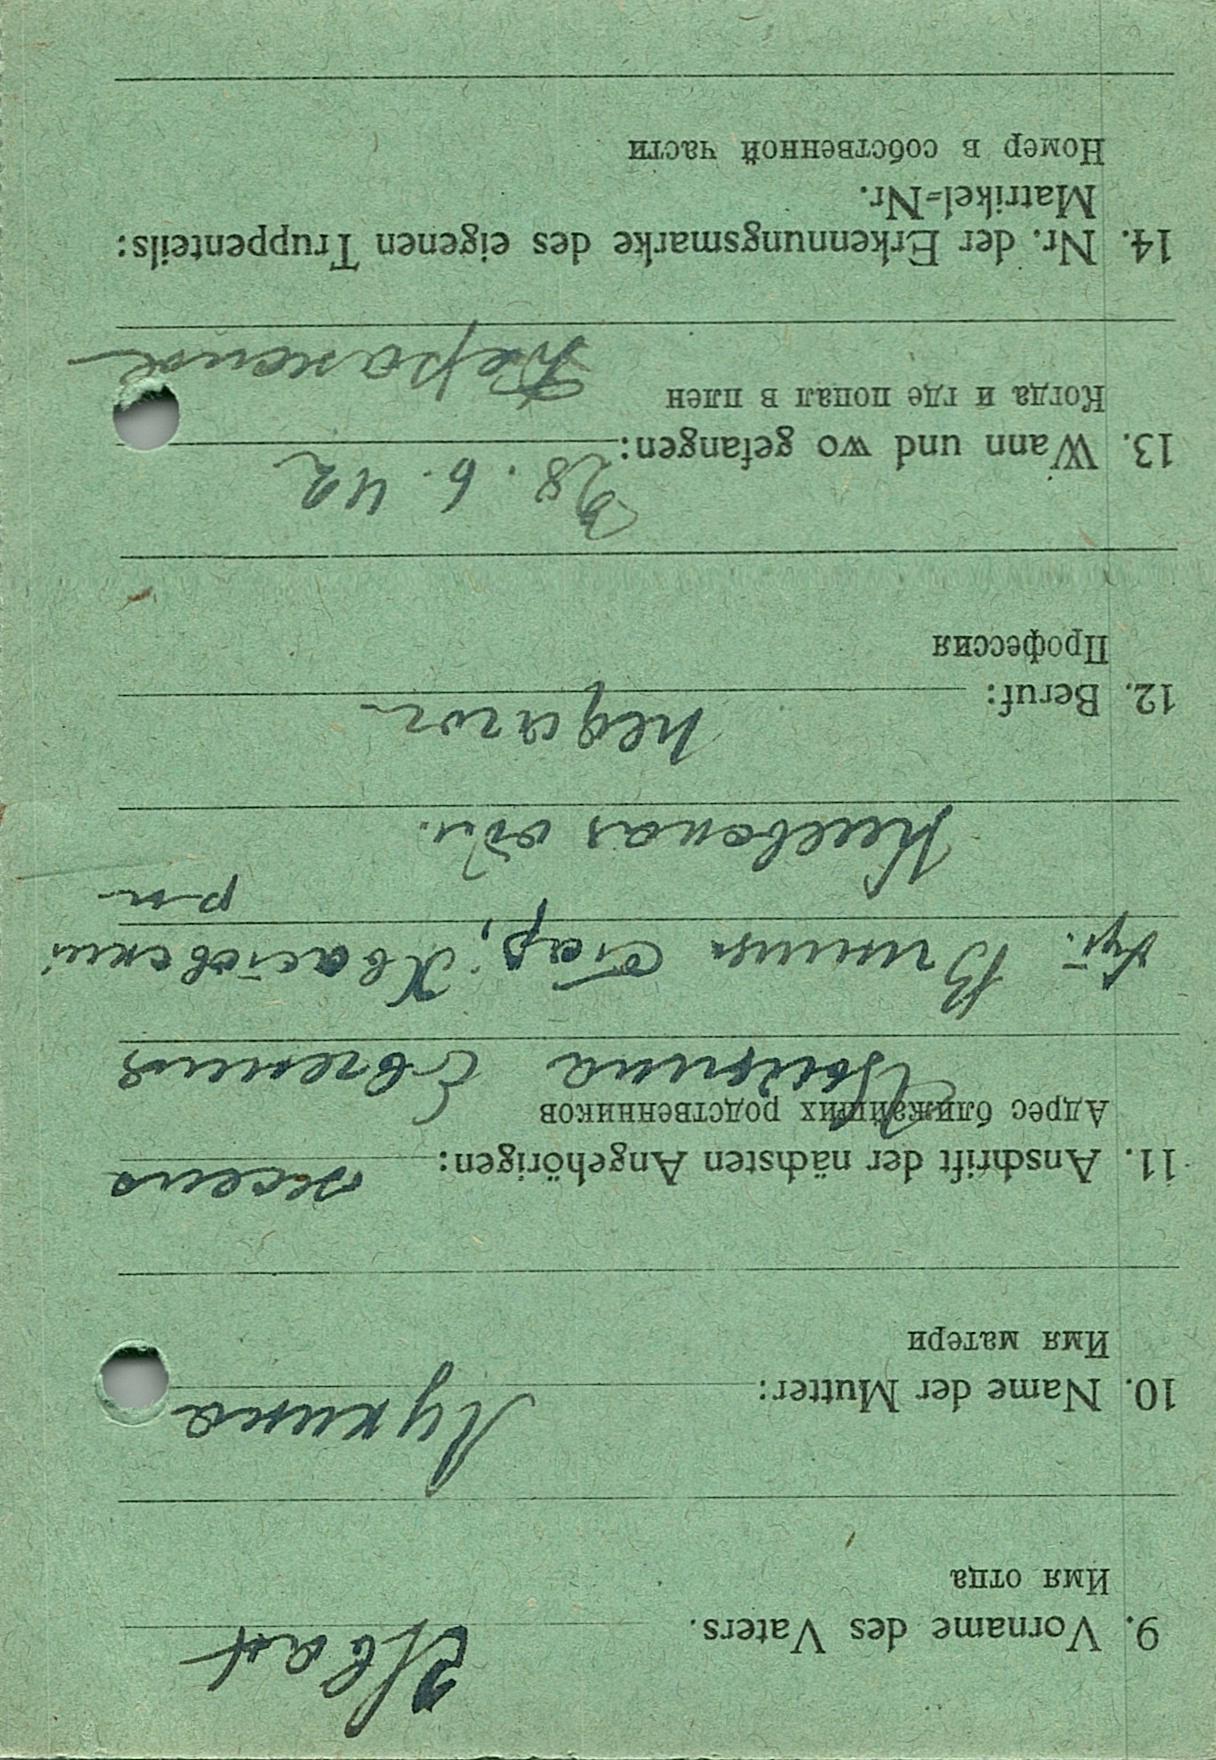 9. Vorname des Vaters.
Имя отца
Иван
10. Name der Mutter:
Имя матери
Лукина
11. Anschrift der nächsten Angehörigen:
жена
Адрес ближайших родственников
Евгения
Хут. Стар, Хвастовский
р-н
Киевская обл.
12. Beruf: педагог
Профессия
28. 6. 42
13. Wann und wo gefangen:
Когда и где попал в плен
14. Nr. der Erkennungsmarke des eigenen Truppenteils:
Matrikel=Nr.
Номер в собственной части